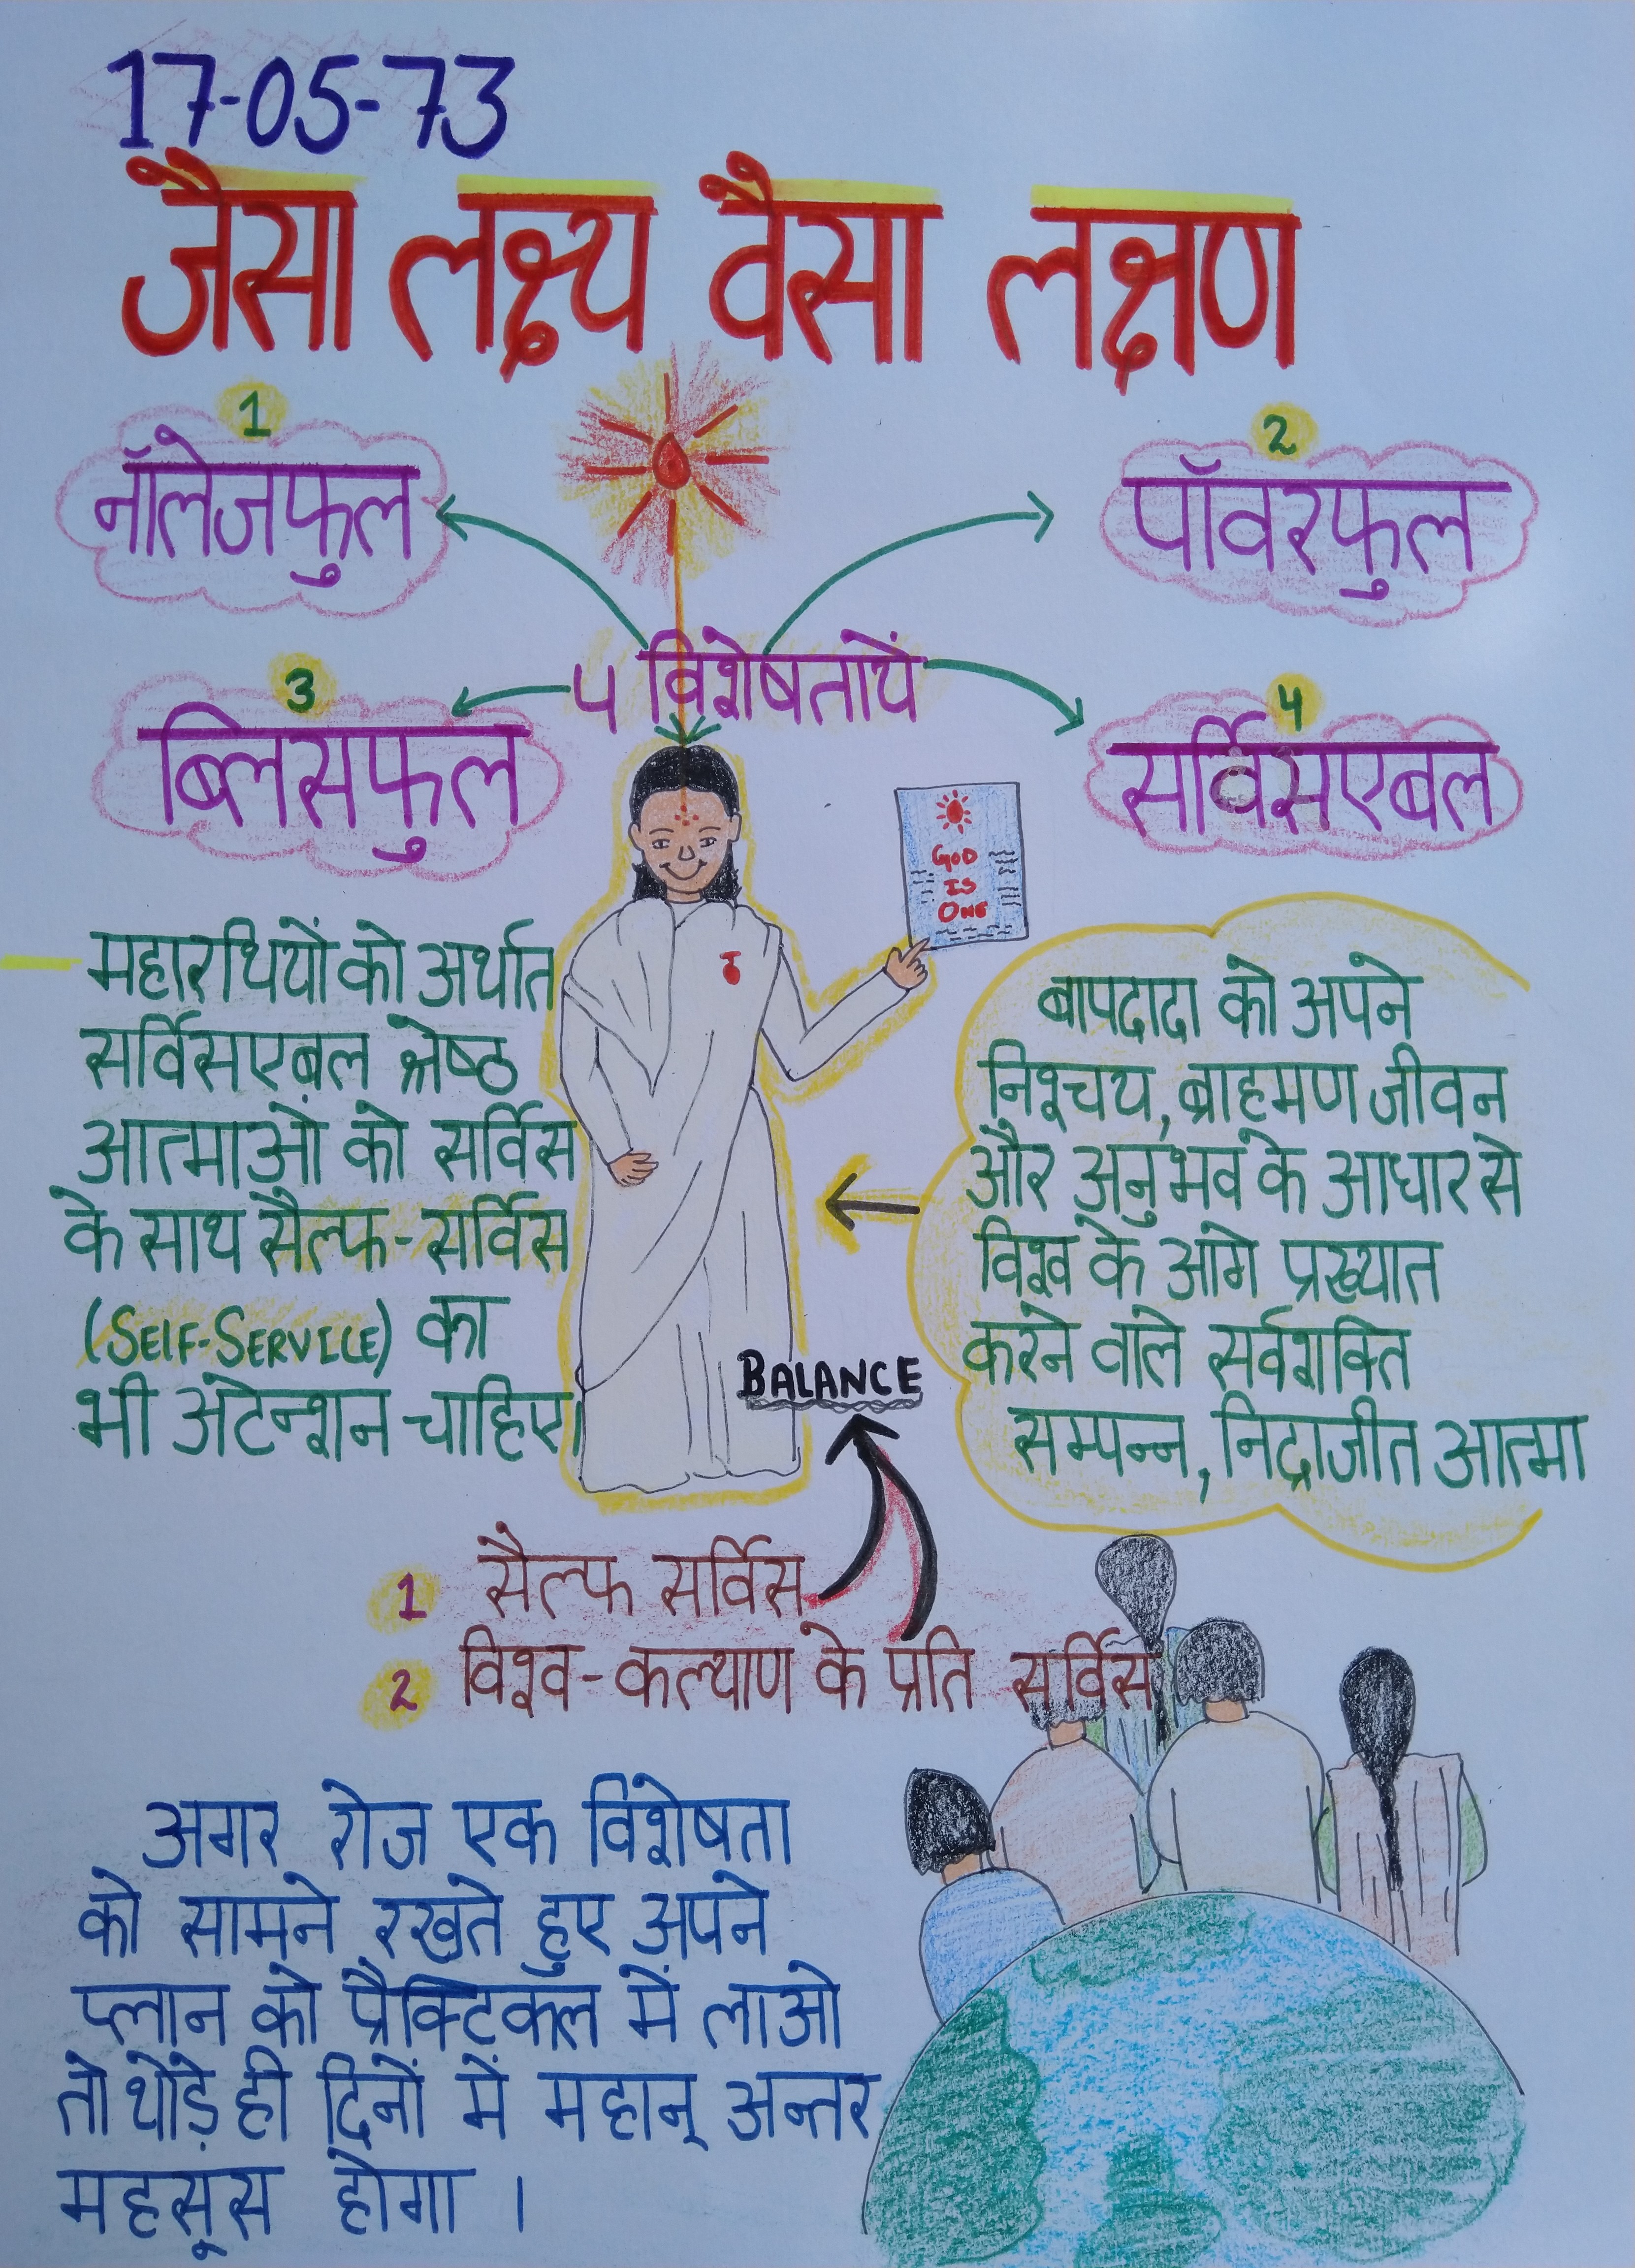 17-05-73
जैसा लक्ष्य वैसा लक्षण
1
नॉलेजफुल
2
पॉवरफुल
४ विशेषतायें
3
ब्लिसफुल
4
सर्विसएबल
GOD
IS
ONE
महारथियों को अर्थात
सर्विसएबल श्रेष्ठ
आत्माओं को सर्विस
के साथ सैल्फ-सर्विस
(SELF-SERVICE) का
भी अटेन्शन चाहिए।
बापदादा को अपने
निश्चय, ब्राहमण जीवन
और अनुभव के आधार से
विश्व के आगे प्रख्यात
करने वाले सर्वशक्ति
सम्पन्न, निद्राजीत आत्मा
BALANCE
1 सैल्फ सर्विस
2 विश्व-कल्याण के प्रति सर्विस
अगर रोज एक विशेषता
को सामने रखते हुए अपने
प्लान को प्रैक्टिकल में लाओ
तो थोड़े ही दिनों में महान् अन्तर
महसूस होगा ।